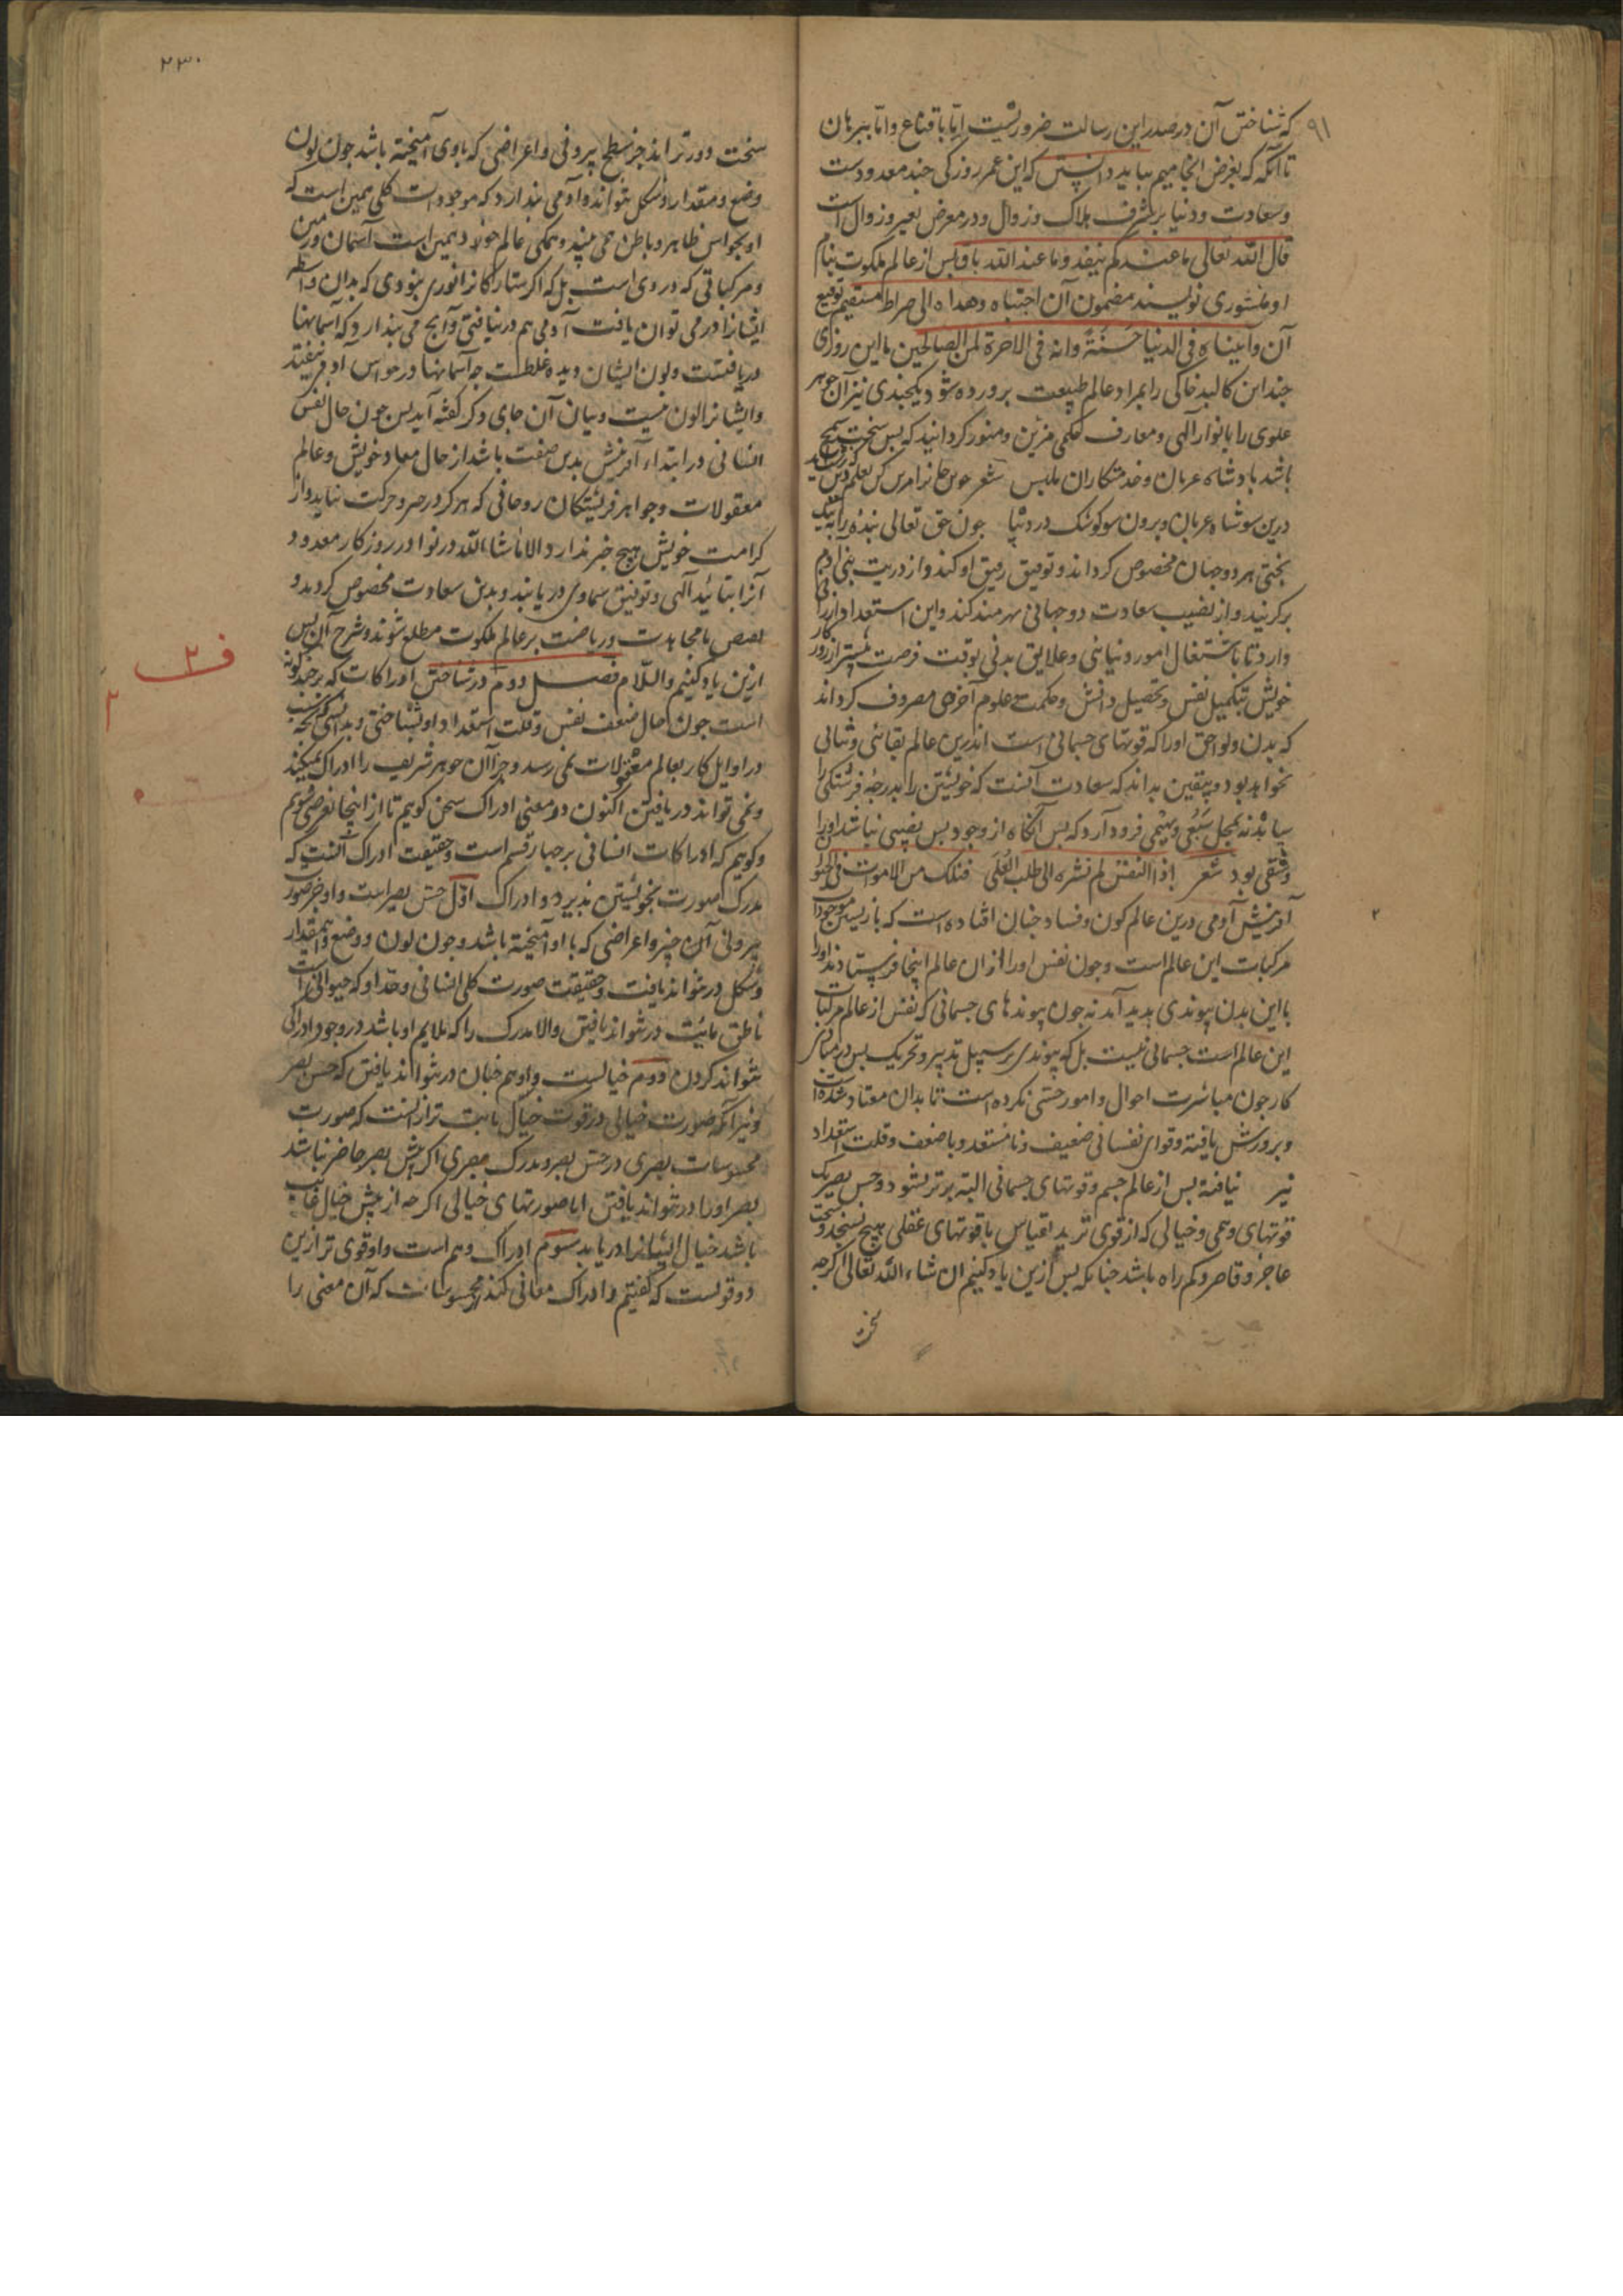 ۹۱
که شناختن آن در صدر این رسالت ضروریست اما باقناع و اما ببرهان
تا آنکه که بغرض انجامیم بباید دانستن که این عمر روزکی چند معدودست
و سعادت و دنیا بر شرف هلاک و زوال و در معرض تغیر و زوال است
قال الله تعالی ما عندکم ینفد وما عند الله باق پس از عالم ملکوت بنام
او منشوری نویسند مضمون آن اجتباه وهداه الی صراط مستقیم توقیع
آن وآتیناه فی الدنیا حسنة وانه فی الاخرة لمن الصالحین با این روزی
چند این کالبد خاکی را بمراد عالم طبیعت پرورده شود یکچندی نیز آن جوهر
علوی را بانوار آلهی و معارف حکمی مزین و منور کردانید که بس سخت سمج
باشد پادشاه عریان و خدمتکاران ملبس شعر
درین سو شاه عریان و برون سو کوشک در دیبا چون حق تعالی بنده را به نیک
بختی هر دو جهان مخصوص کرداند و توفیق رفیق او کند و از ذریت بنی آدم
برکزیند و از نصیب سعادت دو جهانی بهره مند کند و این استعداد ارزانی
دارد تا باشتغال امور دنیائی و علایق بدنی بوقت فرصت بیشتر از روزکار
خویش بتکمیل نفس و تحصیل دانش و حکمت و علوم آخرتی مصروف کرداند
که بدن و لواحق او را که قوتهای جسمانی است اندرین عالم بقائی و ثباتی
نخواهد بود و بیقین بداند که سعادت آنست که خویشتن را بدرجۀ فرشتکی
رساند نه بمحل سبعی و بهیمی فرود آرد که پس آنکاه از وجود بس نصیبی نباشد او را
و شقی بود شعر اذا النفس لم تشره الی طلب العلی فتلک من الاموات فی الحیوة
آفرینش آدمی درین عالم کون و فساد چنان افتاده است که بازپسین موجودات
مرکبات این عالم است و چون نفس او را از ان عالم اینجا فرستادند او را
با این بدن پیوندی پدید آمد نه چون پیوندهای جسمانی که نفس از عالم مرکبات
این عالم است جسمانی نیست بل که پیوندی بر سبیل تدبیر و تحریک پس در مبادی
کار چون مباشرت احوال و امور حسی نکرده است تا بدان معتاد شده است
و پرورش یافته و قوای نفسانی ضعیف و نامستعد و با ضعف و قلت استعداد
نیز نیافته پس از عالم جسم و قوتهای جسمانی البته برتر نشود و حس بصر یک
قوتهای وهمی و خیالی که از قوی ترند بقیاس با قوتهای عقلی هیچ نسنجد و سخت
عاجز و قاصر و کم راه باشد چنانکه پس ازین یاد کنیم ان شاء الله تعالی اکرچه
۲۳۰
سخت دورتر اند جز سطح بیرونی و اعراضی که با وی آمیخته باشد چون لون
و وضع و مقدار و شکل نتواند و آدمی پندارد که موجودات کلی همین است که
او بحواس ظاهر و باطن همی بیند و همکی عالم خود همین است آسمان و زمین
و مرکباتی که در وی است بل که اکر ستارکانرا نوری نبودی که بدان واسطه
ایشانرا در می توان یافت آدمی هم در نیافتی و آنچ می پندارد که آسمانها
دریافتست و لون ایشان دیده غلطست چه آسمانها در حواس آدمی نیفتد
و ایشانرا لون نیست و بیان آن جای دکر کفته آید پس چون حال نفس
انسانی در ابتداء آفرینش بدین صفت باشد از حال معاد خویش و عالم
معقولات و جواهر فریشتکان روحانی که هرکز در حصر و حرکت نیاید و از
کرامت خویش هیچ خبر ندارد الا ماشاء الله در نوادر روزکار معدود
آنرا بتائید آلهی و توفیق سماوی دریابند و بدین سعادت مخصوص کردند و
بعضی با مجاهدت و ریاضت بر عالم ملکوت مطلع شوند و شرح آن پس
ازین یاد کنیم والسلام فصل دوم در شناختن ادراکات که بر چند کونه
است چون حال ضعف نفس و قلت استعداد او بشناختی و بدانستی که بچه سبب
در اوایل کار بعالم معقولات نمی رسد و چرا آن جوهر شریف را ادراک نمیکند
و نمی تواند دریافتن اکنون در معنی ادراک سخن کویم تا از اینجا بغرض شویم
و کویم که ادراکات انسانی بر چهار قسم است و حقیقت ادراک آنست که
مدرک صورت بخویشتن پذیرد و ادراک اول حس بصر است و او جز صورت
بیرونی آن چیز و اعراضی که با او آمیخته باشد و چون لون و وضع و مقدار
و شکل در نتواند یافت و حقیقت صورت کلی انسانی و حد او که حیوانی است
ناطق مائت در نتواند یافتن و الا مدرک را که ملایم او باشد در وجود ادراک
نتواند کردن دوم خیالست و او هم چنان در نتواند یافتن که حس بصر
و نیز آنکه صورت خیالی در قوت خیال ثابت تر از آنست که صورت
محسوسات بصری در حس بصر و مدرک مبصری اکر پیش بصر حاضر نباشد
بصر او را در نتواند یافتن اما صورتهای خیالی اکرچه از پیش خیال غایب
باشد خیال ایشانرا دریابد سوم ادراک وهم است و او قوی تر ازین
دو قوتست که کفتیم و ادراک معانی کند از محسوسات که آن معنی را
ف ۲
۲